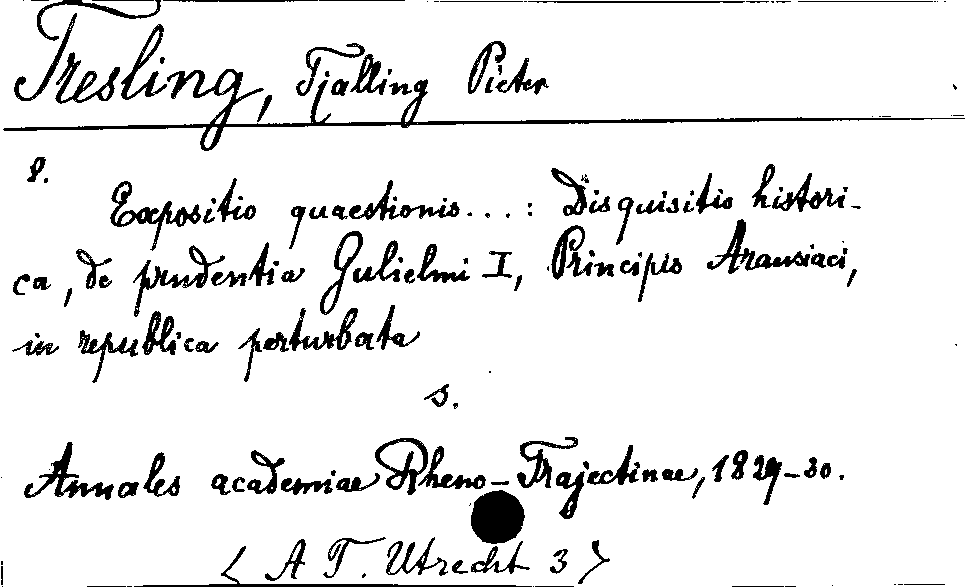 Tresling, Tjalling Pieter
8.
Expositio quaestionis...: Disquisitio histori-
ca, de prudentia Gulielmi I, Principis Arausiaci,
in republica perturbata
s.
Annales academiae Rheno-Trajectinae, 1829-30.
< A T. Utrecht 3 >